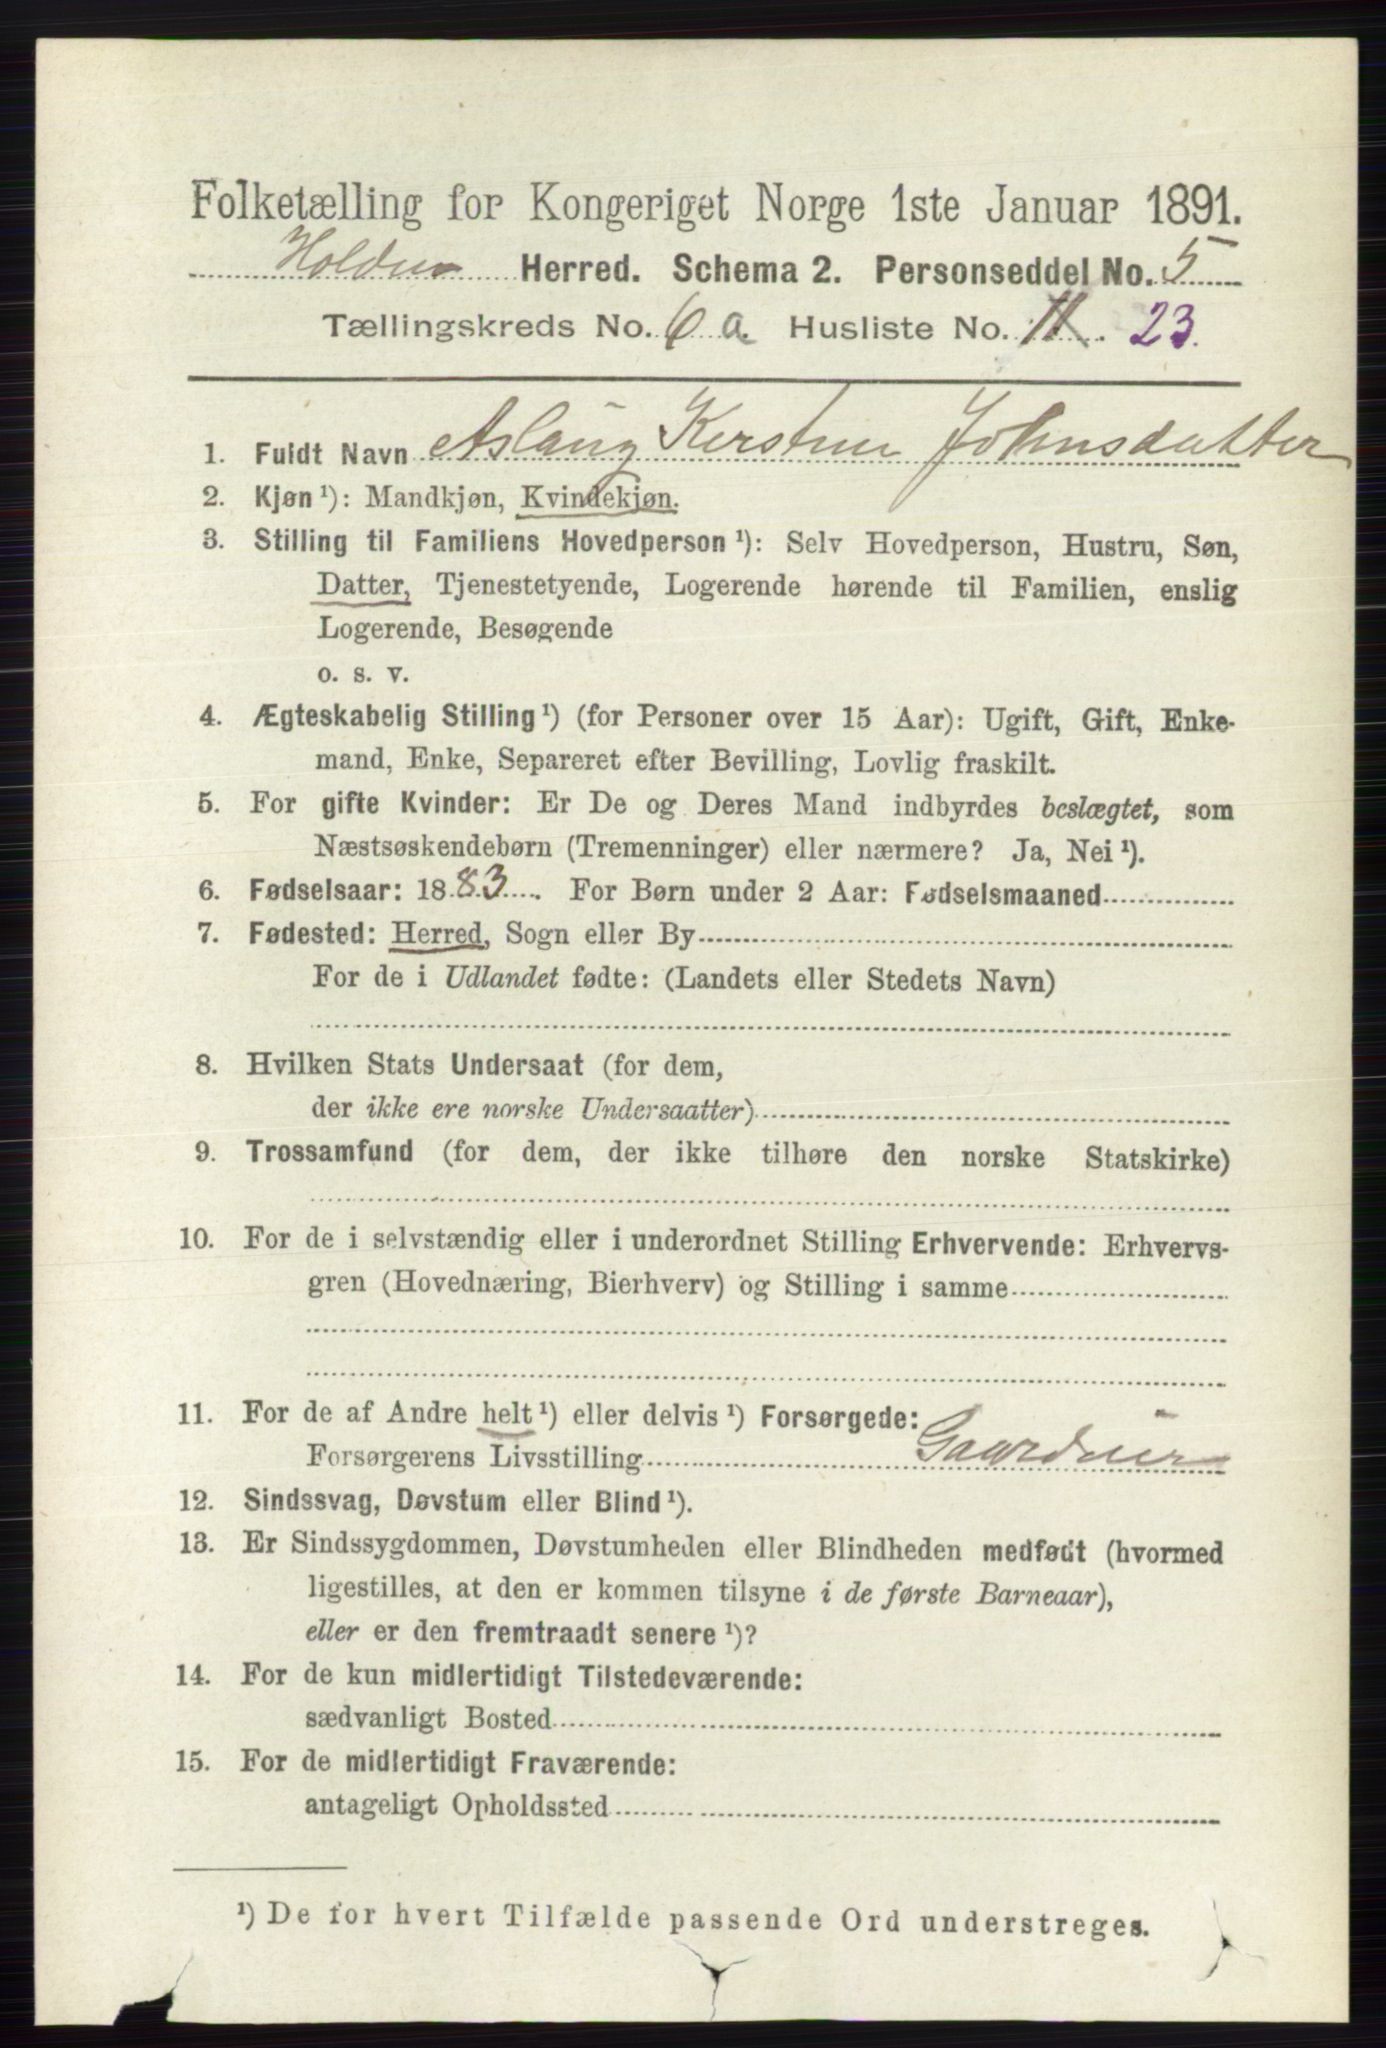 Folketælling for Kongeriget Norge 1ste Januar 1891.
Holden Herred. Schema 2. Personseddel No. 5
Tællingskreds No. 6 a. Husliste No. 11. 23.
1. Fuldt Navn Aslaug Kerstine Johnsdatter
2. Kjøn ¹): Mandkjøn, Kvindekjøn.
3. Stilling til Familiens Hovedperson ¹): Selv Hovedperson, Hustru, Søn,
Datter, Tjenestetyende, Logerende hørende til Familien, enslig
Logerende, Besøgende
o. s. v.
4. Ægteskabelig Stilling ¹) (for Personer over 15 Aar): Ugift, Gift, Enke-
mand, Enke, Separeret efter Bevilling, Lovlig fraskilt.
5. For gifte Kvinder: Er De og Deres Mand indbyrdes beslægtet, som
Næstsøskendebørn (Tremenninger) eller nærmere? Ja, Nei ¹).
6. Fødselsaar: 1883. For Børn under 2 Aar: Fødselsmaaned
7. Fødested: Herred, Sogn eller By
For de i Udlandet fødte: (Landets eller Stedets Navn)
8. Hvilken Stats Undersaat (for dem,
der ikke ere norske Undersaatter)
9. Trossamfund (for dem, der ikke tilhøre den norske Statskirke)
10. For de i selvstændig eller i underordnet Stilling Erhvervende: Erhvervs-
gren (Hovednæring, Bierhverv) og Stilling i samme
11. For de af Andre helt ¹) eller delvis ¹) Forsørgede:
Forsørgerens Livsstilling Gaardeier
12. Sindssvag, Døvstum eller Blind ¹).
13. Er Sindssygdommen, Døvstumheden eller Blindheden medfødt (hvormed
ligestilles, at den er kommen tilsyne i de første Barneaar),
eller er den fremtraadt senere ¹)?
14. For de kun midlertidigt Tilstedeværende:
sædvanligt Bosted
15. For de midlertidigt Fraværende:
antageligt Opholdssted
¹) De for hvert Tilfælde passende Ord understreges.